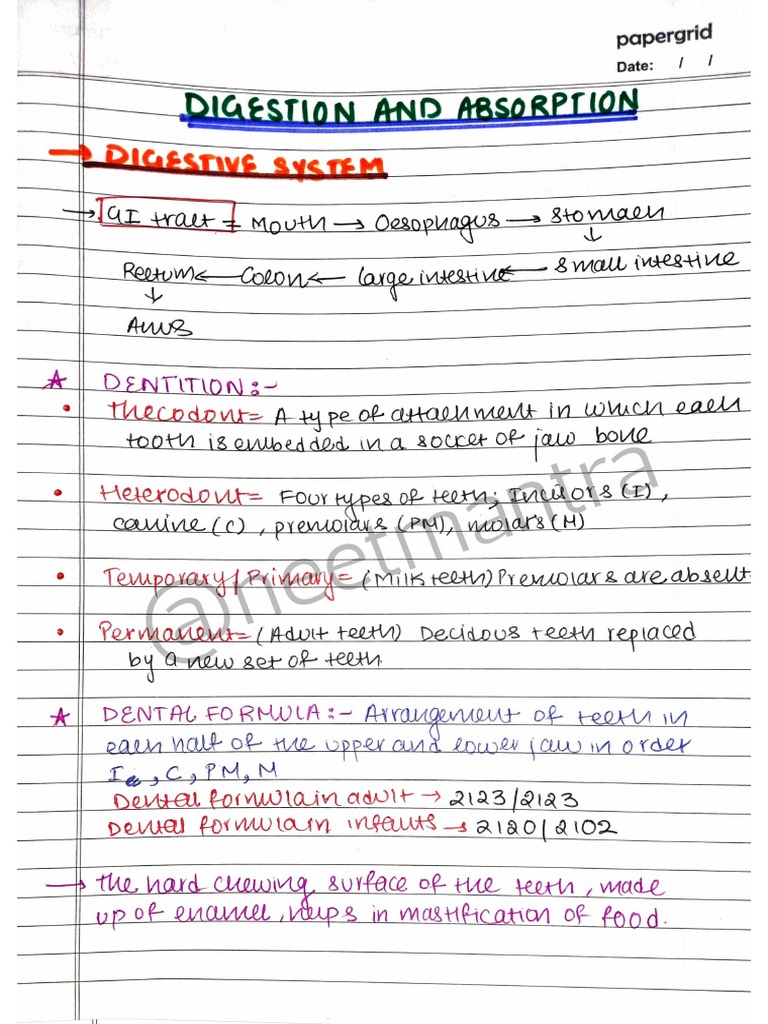 papergrid
Date: / /
DIGESTION AND ABSORPTION
→ DIGESTIVE SYSTEM
→ GI tract = Mouth → Oesophagus → Stomach
↓
Rectum ← Colon ← large intestine ← small intestine
↓
Anus
☆ DENTITION:-
• Thecodont= A type of attachment in which each
tooth is embedded in a socket of jaw bone
• Heterodont= Four types of teeth; Incisors (I),
canine (C), premolars (PM), molars (M)
• Temporary/Primary= (Milk teeth) Premolars are absent
• Permanent= (Adult teeth) Decidous teeth replaced
by a new set of teeth
☆ DENTAL FORMULA:- Arrangement of teeth in
each half of the upper and lower jaw in order
I, C, PM, M
Dental formula in adult → 2123/2123
Dental formula in infants → 2120/2102
→ the hard chewing surface of the teeth, made
up of enamel, helps in mastification of food.
@neetmantra